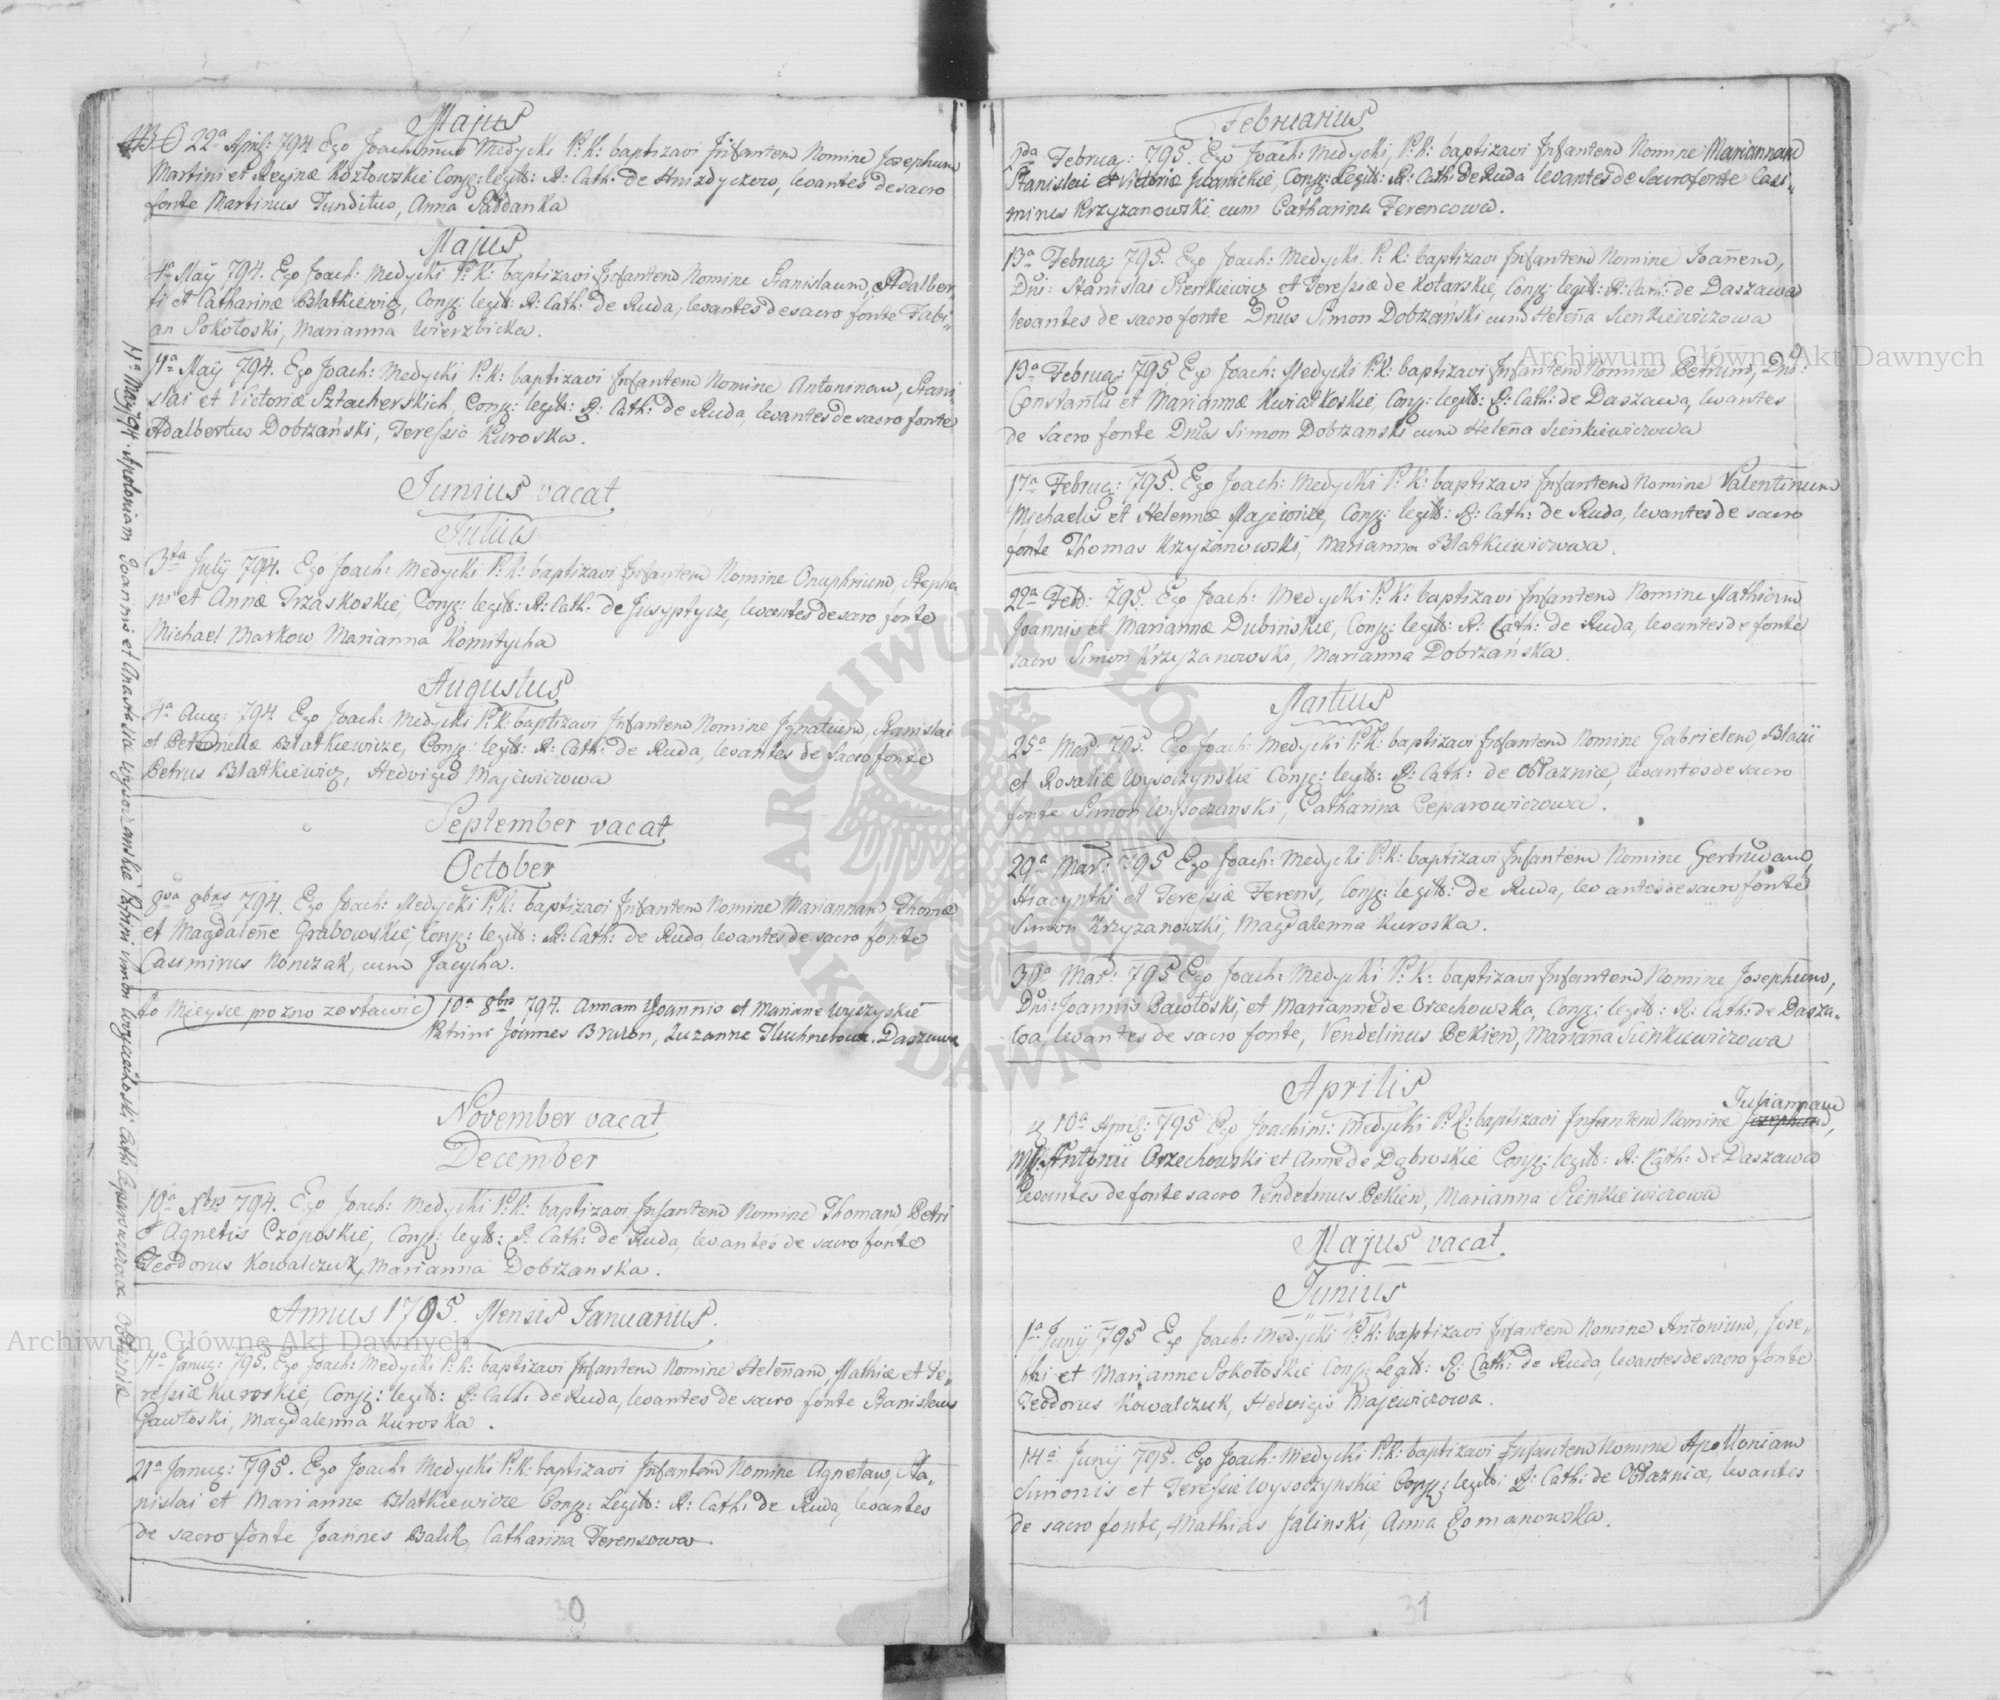 Majus
NB 22ª April: 794 Ego Joachimus Medycki P: K: baptizavi Infantem Nomine Josephum
Martini et Reginæ Kozłowskie Conjg: legit: R: Cath: De Hnizdyczew, levantes de sacro
fonte Martinus Funditus, Anna Paddanka
Majus
4ª May 794. Ego Joach: Medycki P: K: baptizavi Infantem Nomine Stanislaum, Adalber-
ti et Catharinæ Blatkiewicz, Conjg: legit: R: Cath: De Ruda, levantes de sacro fonte Fabi-
an Sokołoski, Marianna Wierzbicka.
11ª May 794. Ego Joach: Medycki P: K: baptizavi Infantem Nomine Antoninam, Stani-
slai et Victoriæ Sztacherskich, Conjg: legit: R: Cath: de Ruda, levantes de sacro fonte
Adalbertus Dobrzański, Teressia Kuroska.
Junius vacat
Julius
3tia July 794. Ego Joach: Medycki P: K: baptizavi Infantem Nomine Onuphrium, Stepha-
ni et Annæ Trzaskoskie, Conjg: legit: R: Cath: de levantes de sacro fonte
Michael Markow Marianna Komitycha
Augustus
4ª Aug: 794 Ego Joach: Medycki P: K: baptizavi Infantem Nomine Ignatium, Stanislai
et Petronellæ Blatkiewicze, Conjg: legit: R: Cath: de Ruda, levantes de Sacro fonte
Petrus Blatkiewicz, Hedvigis Majewiczowa
September vacat
October
8va 8bris 794. Ego Joach: Medycki P: K: baptizavi Infantem Nomine Mariannam Thomæ
et Magdalene Grabowskie, Conjg: legit: R: Cath: de Ruda, levantes de sacro fonte
Casimirus Nonczak, cum Jacycha.
to Mieysce pozno zostawic) 10ª 8bris 794. Annam Yoannis et Mariane Wyszyskie
Patrini Joannes Bruron, Zuzanne Daszawa
November vacat
December
10ª Xbris 794. Ego Joach: Medycki P: K: baptizavi Infantem Nomine Thomam, Petri
& Agnetis Czoposkie, Conjg: legit: R: Cath: de Ruda, levantes de sacro fonte
Teodorus Kowalczuk, Marianna Dobrzanska.
Annus 1795. Mensis Januarius.
11ª Janua: 795. Ego Joach: Medycki P: K: baptizavi Infantem Nomine Helenam, Mathiæ et Te-
ressiæ Kuroskie, Conjg: legit: R: Cath: de Ruda, levantes de sacro fonte Stanislaus
Gawłoski, Magdalenna Kuroska.
21ª Janua: 795. Ego Joach: Medycki P: K: baptizavi Infantem Nomine Agnetam, Sta-
nislai et Marianne Blatkiewicze Conjg: Legit: R: Cath: de Ruda, levantes
de sacro fonte Joannes Balik, Catharina Ferensowa
11ª May 794. Apoloniam Joannis et Anastasia Wysoczanskie Patrini Simon Woyciechoski Cath: Ceparowiczowa Obłaznia
30
Februarius
2da Februa: 795. Ego Joach: Medycki, P: K: baptizavi Infantem Nomine Mariannam
Stanislai et Victoriæ Iwanickie, Conjg: Legit: R: Cath: de Ruda levantes de Sacro fonte Casi-
mirus Krzyzanowski cum Catharina Ferencowa.
13ª Februa: 795. Ego Joach: Medycki P: K: baptizavi Infantem Nomine Joannem,
Dni: Stanislai Sienkiewicz et Teressiæ de Kotarskie, Conjg: legit: R: Cath: de Daszawa
levantes de sacro fonte Dnus Simon Dobrzański cum Helena Sienkiewiczowa
13ª Februa: 795 Ego Joach: Medycki P: K: baptizavi Infantem Nomine Petrum, Dni:
Constantii et Mariannæ Kwiatkoskie, Conjg: legit: R: Cath: de Daszawa, levantes
de Sacro fonte Dnus Simon Dobrzanski cum Helena Sienkiewiczowa
17ª Februa: 795. Ego Joach: Medycki P: K: baptizavi Infantem Nomine Valentinum
Michaelis et Helennæ Majewicze, Conjg: legit: R: Cath: de Ruda, levantes de sacro
fonte Thomas Krzyżanowski, Marianna Blatkiewiczowa.
22ª Feb: 795. Ego Joach: Medycki P: K: baptizavi Infantem Nomine Mathiam
Joannis et Mariannæ Dubińskie, Conjg: legit: R: Cath: de Ruda, levantes de fonte
sacro Simon Krzyzanowski, Marianna Dobrzańska.
Martius
25ª Mar: 795. Ego Joach: Medycki P: K: baptizavi Infantem Nomine Gabrielem, Blasii
et Rosaliæ Wysoczynskie Conjg: legit: R: Cath: de Obłaznice, levantes de sacro
fonte Simon Wysoczanski, Catharina Ceparowiczowa.
29ª Mar: 795 Ego Joach: Medycki P: K: baptizavi Infantem Nomine Gertrudam,
Hiacynthi et Teressiæ Ferens, Conjg: legit: de Ruda, levantes de sacro fonte
Simon Krzyzanowski, Magdalenna Kuroska.
30ª Mar: 795 Ego Joach: Medycki P: K: baptizavi Infantem Nomine Josephum,
Dni: Joannis Pawłoski, et Marianne de Orzechowska, Conjg: legit: R: Cath: de Dasza-
wa, levantes de sacro fonte, Vendelinus Pekien, Marianna Sienkiewiczowa
Aprilis
Julianam
10ª April: 795 Ego Joachim: Medycki P: K: baptizavi Infantem Nomine Josepham,
Antonii Orzechowski et Anne de Dąbroskie Conjg: legit: R: Cath: de Daszawa
Levantes de fonte sacro Vendelinus Pekien, Marianna Sienkiewiczowa
Majus vacat.
Junius
1ª Juny 795 Ego Joach: Medycki P: K: baptizavi Infantem Nomine Antonium, Jose-
phi et Marianne Sokołoskie Conjg: Legit: R: Cath: de Ruda, levantes de sacro fonte
Teodorus Kowalczuk, Hedvigis Majewiczowa.
14ª Juny 795. Ego Joach: Medycki P: K: baptizavi Infantem Nomine Apolloniam
Simonis et Teressie Wysoczynskie Conjg: legit: R: Cath: de Obłaznice, levantes
de sacro fonte, Mathias Jalinski, Anna Gomanowska.
31
Archiwum Główne Akt Dawnych
Archiwum Główne Akt Dawnych
ARCHIWUM GŁÓWNE AKT DAWNYCH